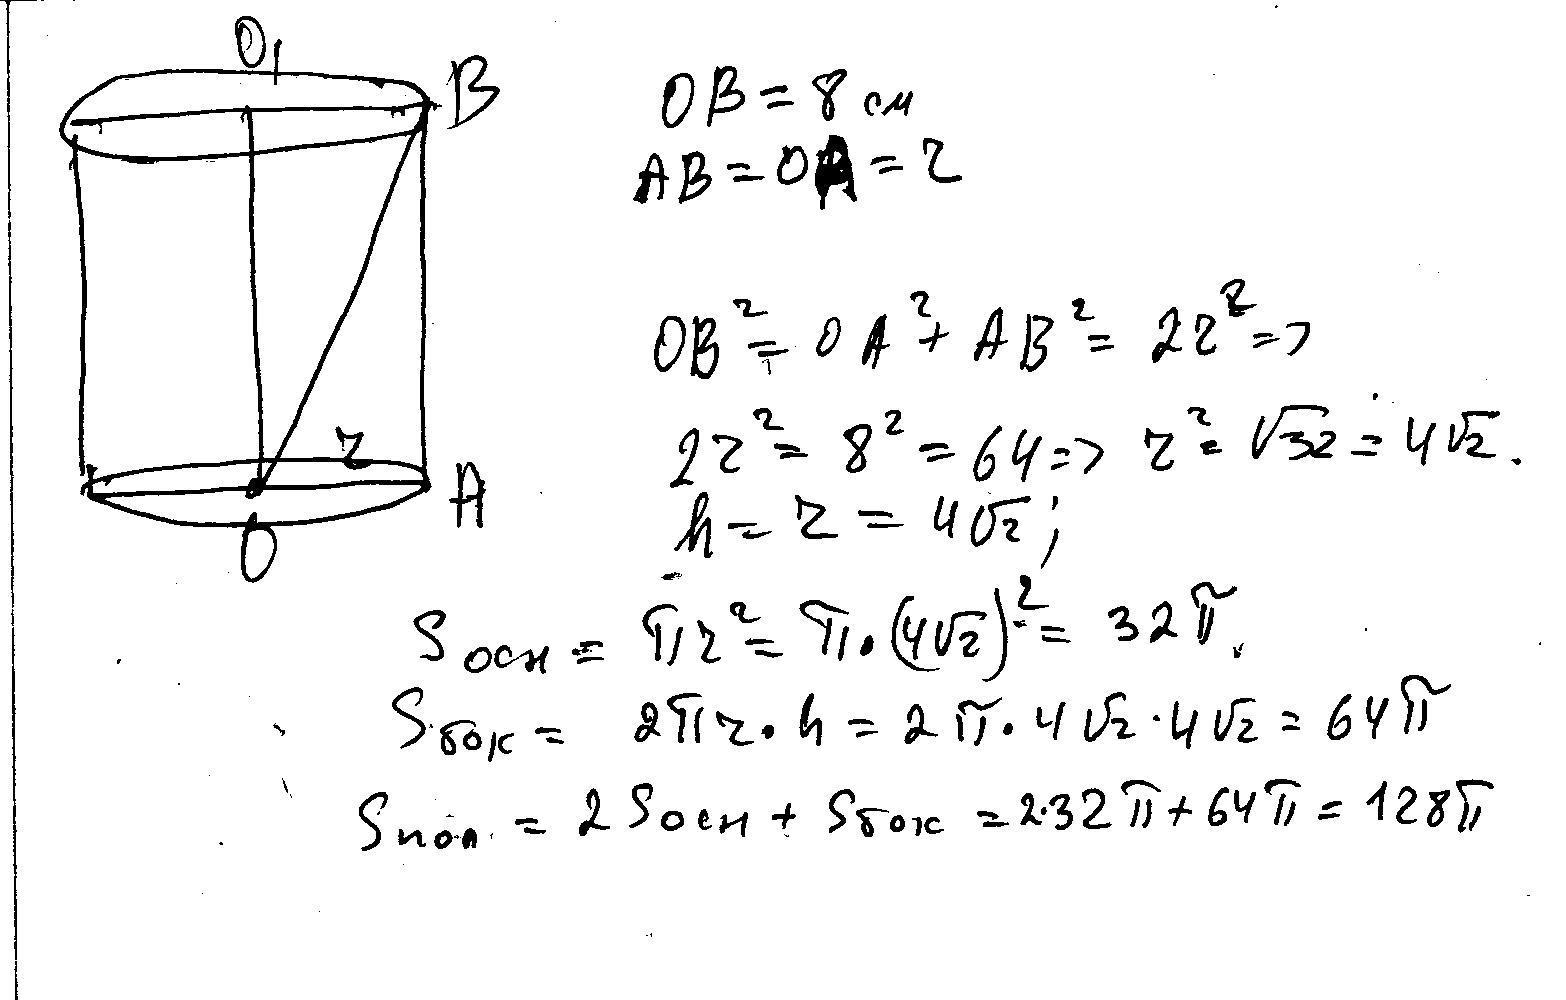 O₁
B
OB = 8 см
AB = OA = r
OB² = OA² + AB² = 2r² =>
r
2r² = 8² = 64 => r² = √32 = 4√2.
A
h = r = 4√2;
O
Sосн = πr² = π·(4√2)² = 32π.
Sбок = 2πr·h = 2π·4√2·4√2 = 64π
Sпол = 2Sосн + Sбок = 2·32π + 64π = 128π